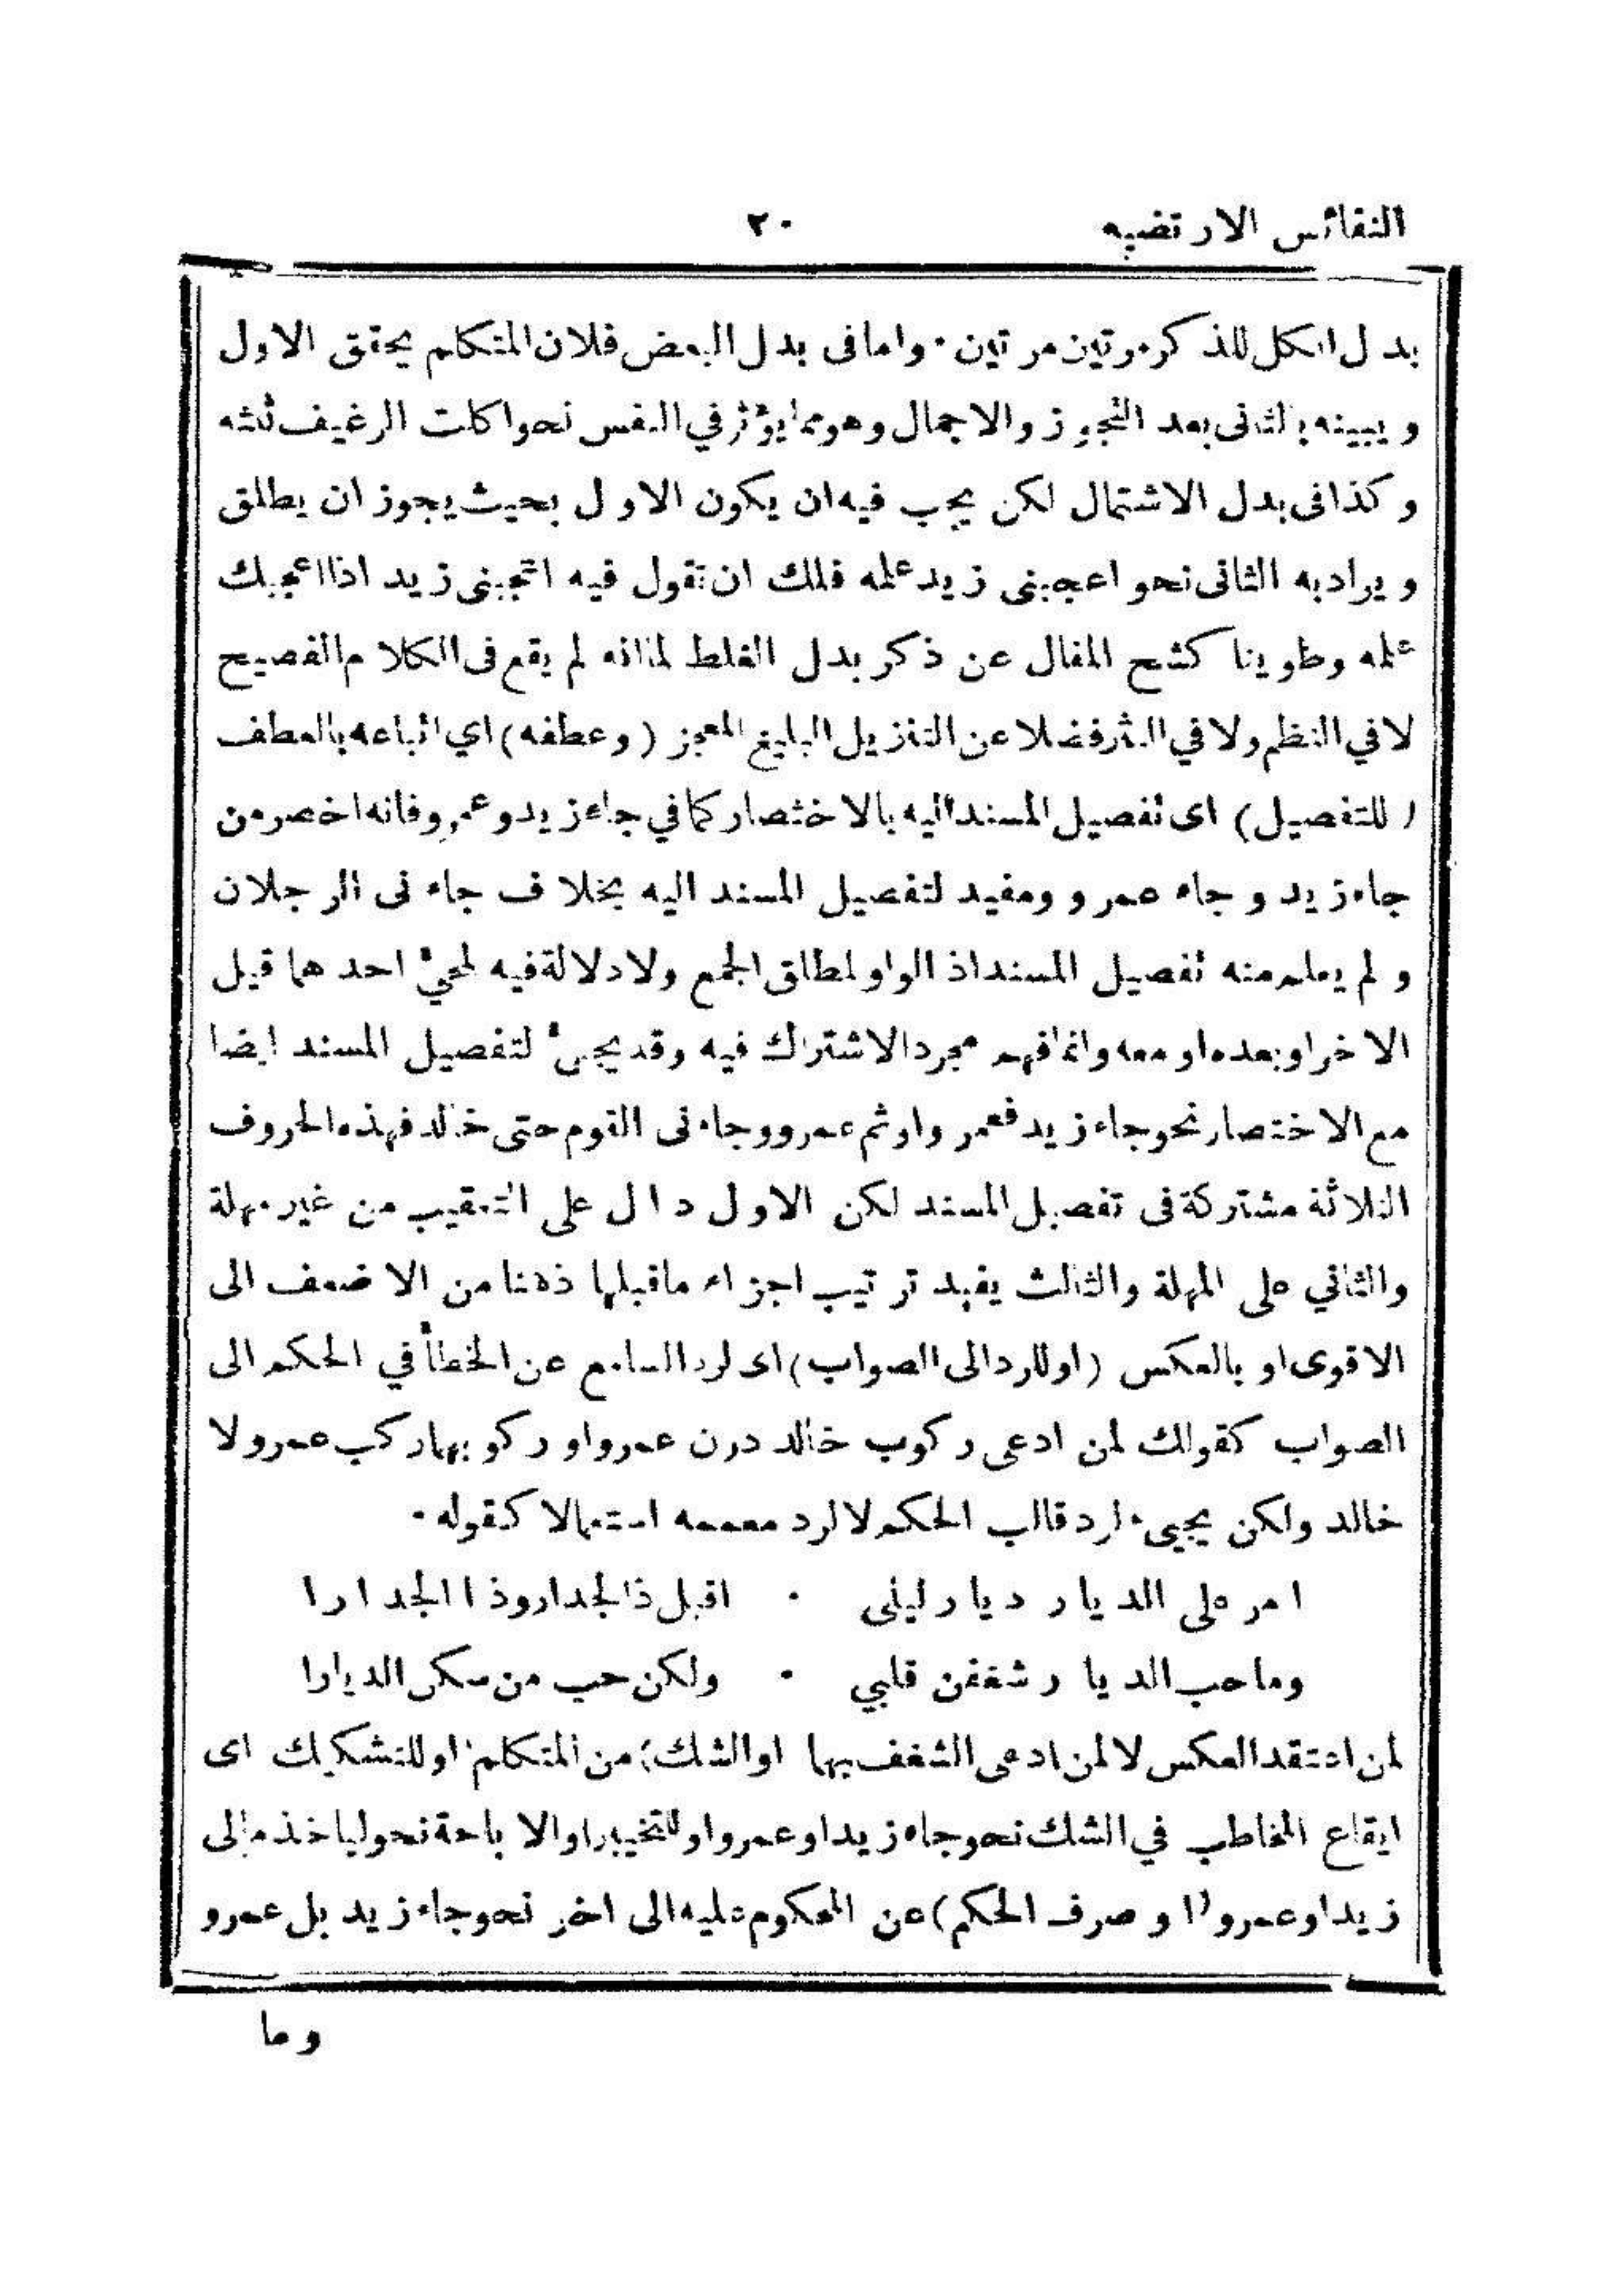 النفائس الارتضيه ٢٠
بدل الكل للذكر مرتين مرتين ٠ واما فى بدل البعض فلان المتكلم يحقق الاول
و يبينه بالثانى بعد التجوز والاجمال وهو مما يؤثر في النفس نحو اكلت الرغيف ثلثه
و كذا فى بدل الاشتمال لكن يجب فيه ان يكون الاول بحيث يجوز ان يطلق
و يراد به الثانى نحو اعجبنى زيد علمه فلك ان تقول فيه اعجبنى زيد اذا اعجبك
علمه وطوينا كشح المقال عن ذكر بدل الغلط لما انه لم يقع فى الكلام الفصيح
لا في النظم ولا في النثر فضلا عن التنزيل البليغ المعجز (وعطفه) اي اتباعه بالعطف
(للتفصيل) اى تفصيل المسند اليه بالاختصار كما في جاء زيد وعمرو فانه اخصر من
جاء زيد و جاء عمرو ومفيد لتفصيل المسند اليه بخلاف جاء نى الرجلان
و لم يعلم منه تفصيل المسند اذ الواو لمطلق الجمع ولا دلالة فيه لمجيء احد هما قبل
الاخر او بعده او معه وانما فهم مجرد الاشتراك فيه وقد يجىء لتفصيل المسند ايضا
مع الاختصار نحو جاء زيد فعمر و او ثم عمرو و جاء نى القوم حتى خالد فهذه الحروف
الثلاثة مشتركة فى تفصيل المسند لكن الاول دال على التعقيب من غير مهلة
والثاني على المهلة والثالث يفيد ترتيب اجزاء ما قبلها ذهنا من الاضعف الى
الاقوى او بالعكس (او للرد الى الصواب) اى لرد السامع عن الخطأ في الحكم الى
الصواب كقولك لمن ادعى ركوب خالد دون عمرو او ركوبهما ركب عمرو لا
خالد ولكن يجيء لرد قالب الحكم لا لرد معممه استعمالا كقوله ٠
امر على الديار ديار ليلى ٠ اقبل ذا الجدار وذا الجدارا
وما حب الديار شغفن قلبي ٠ ولكن حب من سكن الديارا
لمن اعتقد العكس لا لمن ادعى الشغف بهما او الشك) من المتكلم (او للتشكيك اى
ايقاع المخاطب في الشك نحو جاء زيد او عمرو او للتخيير او الاباحة نحو ليأخذ مالى
زيد او عمرو (او صرف الحكم) عن المحكوم عليه الى اخر نحو جاء زيد بل عمرو
وما